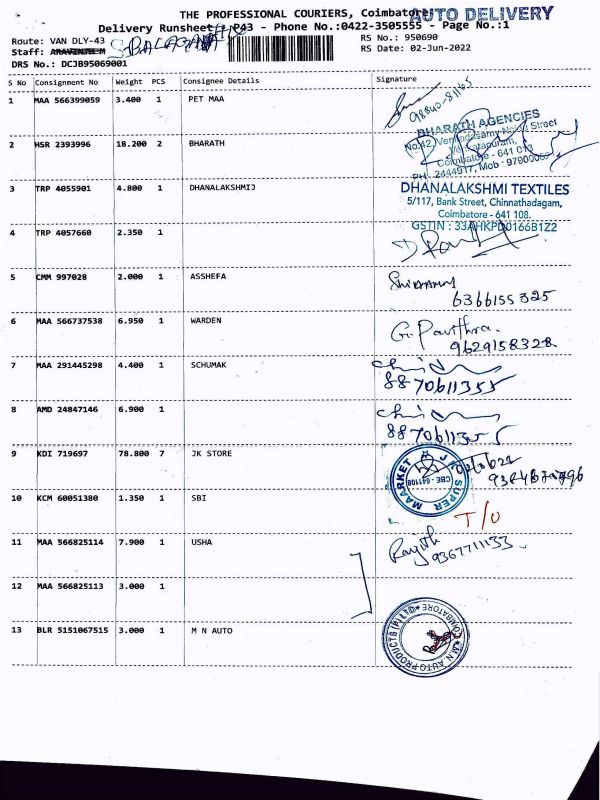 THE PROFESSIONAL COURIERS, Coimbatore
AUTO DELIVERY
Delivery Runsheet P43 - Phone No.:0422-3505555 - Page No.:1
Route: VAN DLY-43
RS No.: 950690
Staff: ARAVINTH M
RS Date: 02-Jun-2022
DRS No.: DCJB95069001
S No Consignment No Weight PCS Consignee Details Signature
1 MAA 566399059 3.400 1 PET MAA
98840-81165
2 HSR 2393996 18.200 2 BHARATH
BHARATH AGENCIES
Coimbatore - 641 013
PH: 2444917, Mob
3 TRP 4055901 4.800 1 DHANALAKSHMIJ
DHANALAKSHMI TEXTILES
5/117, Bank Street, Chinnathadagam,
Coimbatore - 641 108.
GSTIN : 33AHKPD0166B1Z2
4 TRP 4057660 2.350 1
5 CMM 997028 2.000 1 ASSHEFA
6366155325
6 MAA 566737538 6.950 1 WARDEN
G. Pavithra.
9629158328
7 MAA 291445298 4.400 1 SCHUMAK
8870611355
8 AMD 24847146 6.900 1
8870611355
9 KDI 719697 78.800 7 JK STORE
SUPER MARKET
CBE - 641108
10 KCM 60051380 1.350 1 SBI
T/O
11 MAA 566825114 7.900 1 USHA
Rajith
9367711133
12 MAA 566825113 3.000 1
13 BLR 5151067515 3.000 1 M N AUTO
M.N. AUTOPRODUCTS (P) LTD COIMBATORE